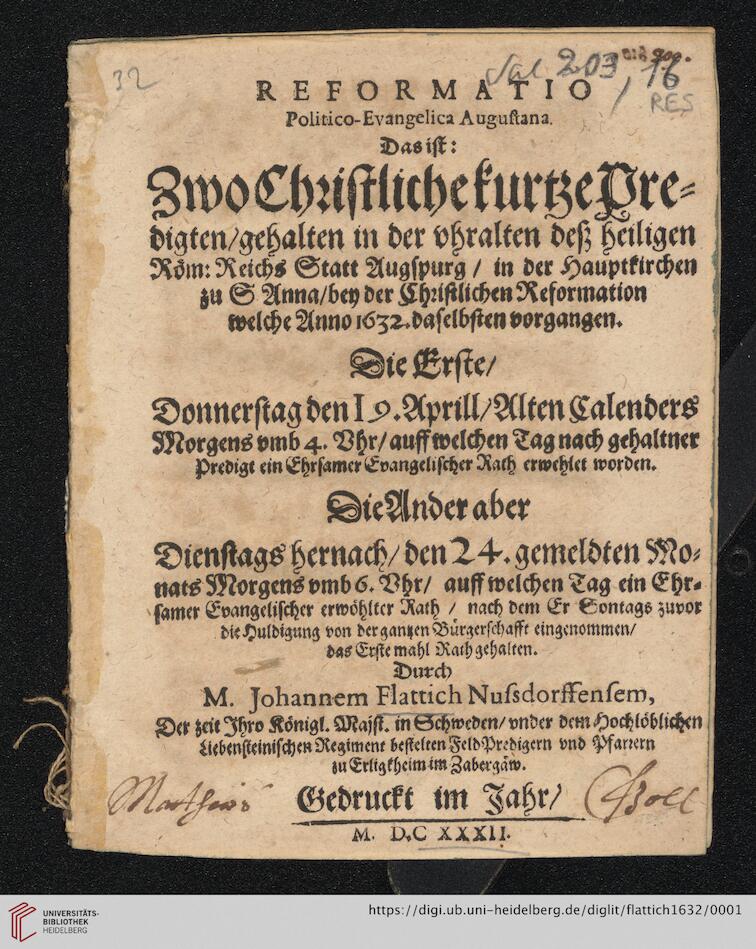 32
Sal. 203, 16
RES
REFORMATIO
Politico-Evangelica Augustana.
Das ist:
Zwo Christliche kurtze Pre-
digten/gehalten in der vhralten deß heiligen
Röm: Reichs Statt Augspurg / in der Hauptkirchen
zu S Anna/bey der Christlichen Reformation
welche Anno 1632. daselbsten vorgangen.
Die Erste/
Donnerstag den 19. Aprill/Alten Calenders
Morgens vmb 4. Vhr/ auff welchen Tag nach gehaltner
Predigt ein Ehrsamer Evangelischer Rath erwehlet worden.
Die Ander aber
Dienstags hernach/ den 24. gemeldten Mo-
nats Morgens vmb 6. Vhr/ auff welchen Tag ein Ehr-
samer Evangelischer erwöhlter Rath / nach dem Er Sontags zuvor
die Huldigung von der gantzen Bürgerschafft eingenommen/
das Erste mahl Rath gehalten.
Durch
M. Johannem Flattich Nussdorffensem,
Der zeit Ihro Königl. Majst. in Schweden/ vnder dem Hochlöblichen
Liebensteinischen Regiment bestelten FeldPredigern vnd Pfarrern
zu Erligkheim im Zabergäw.
Gedruckt im Jahr/
M. D.C XXXII.
UNIVERSITÄTS-
BIBLIOTHEK
HEIDELBERG
https://digi.ub.uni-heidelberg.de/diglit/flattich1632/0001